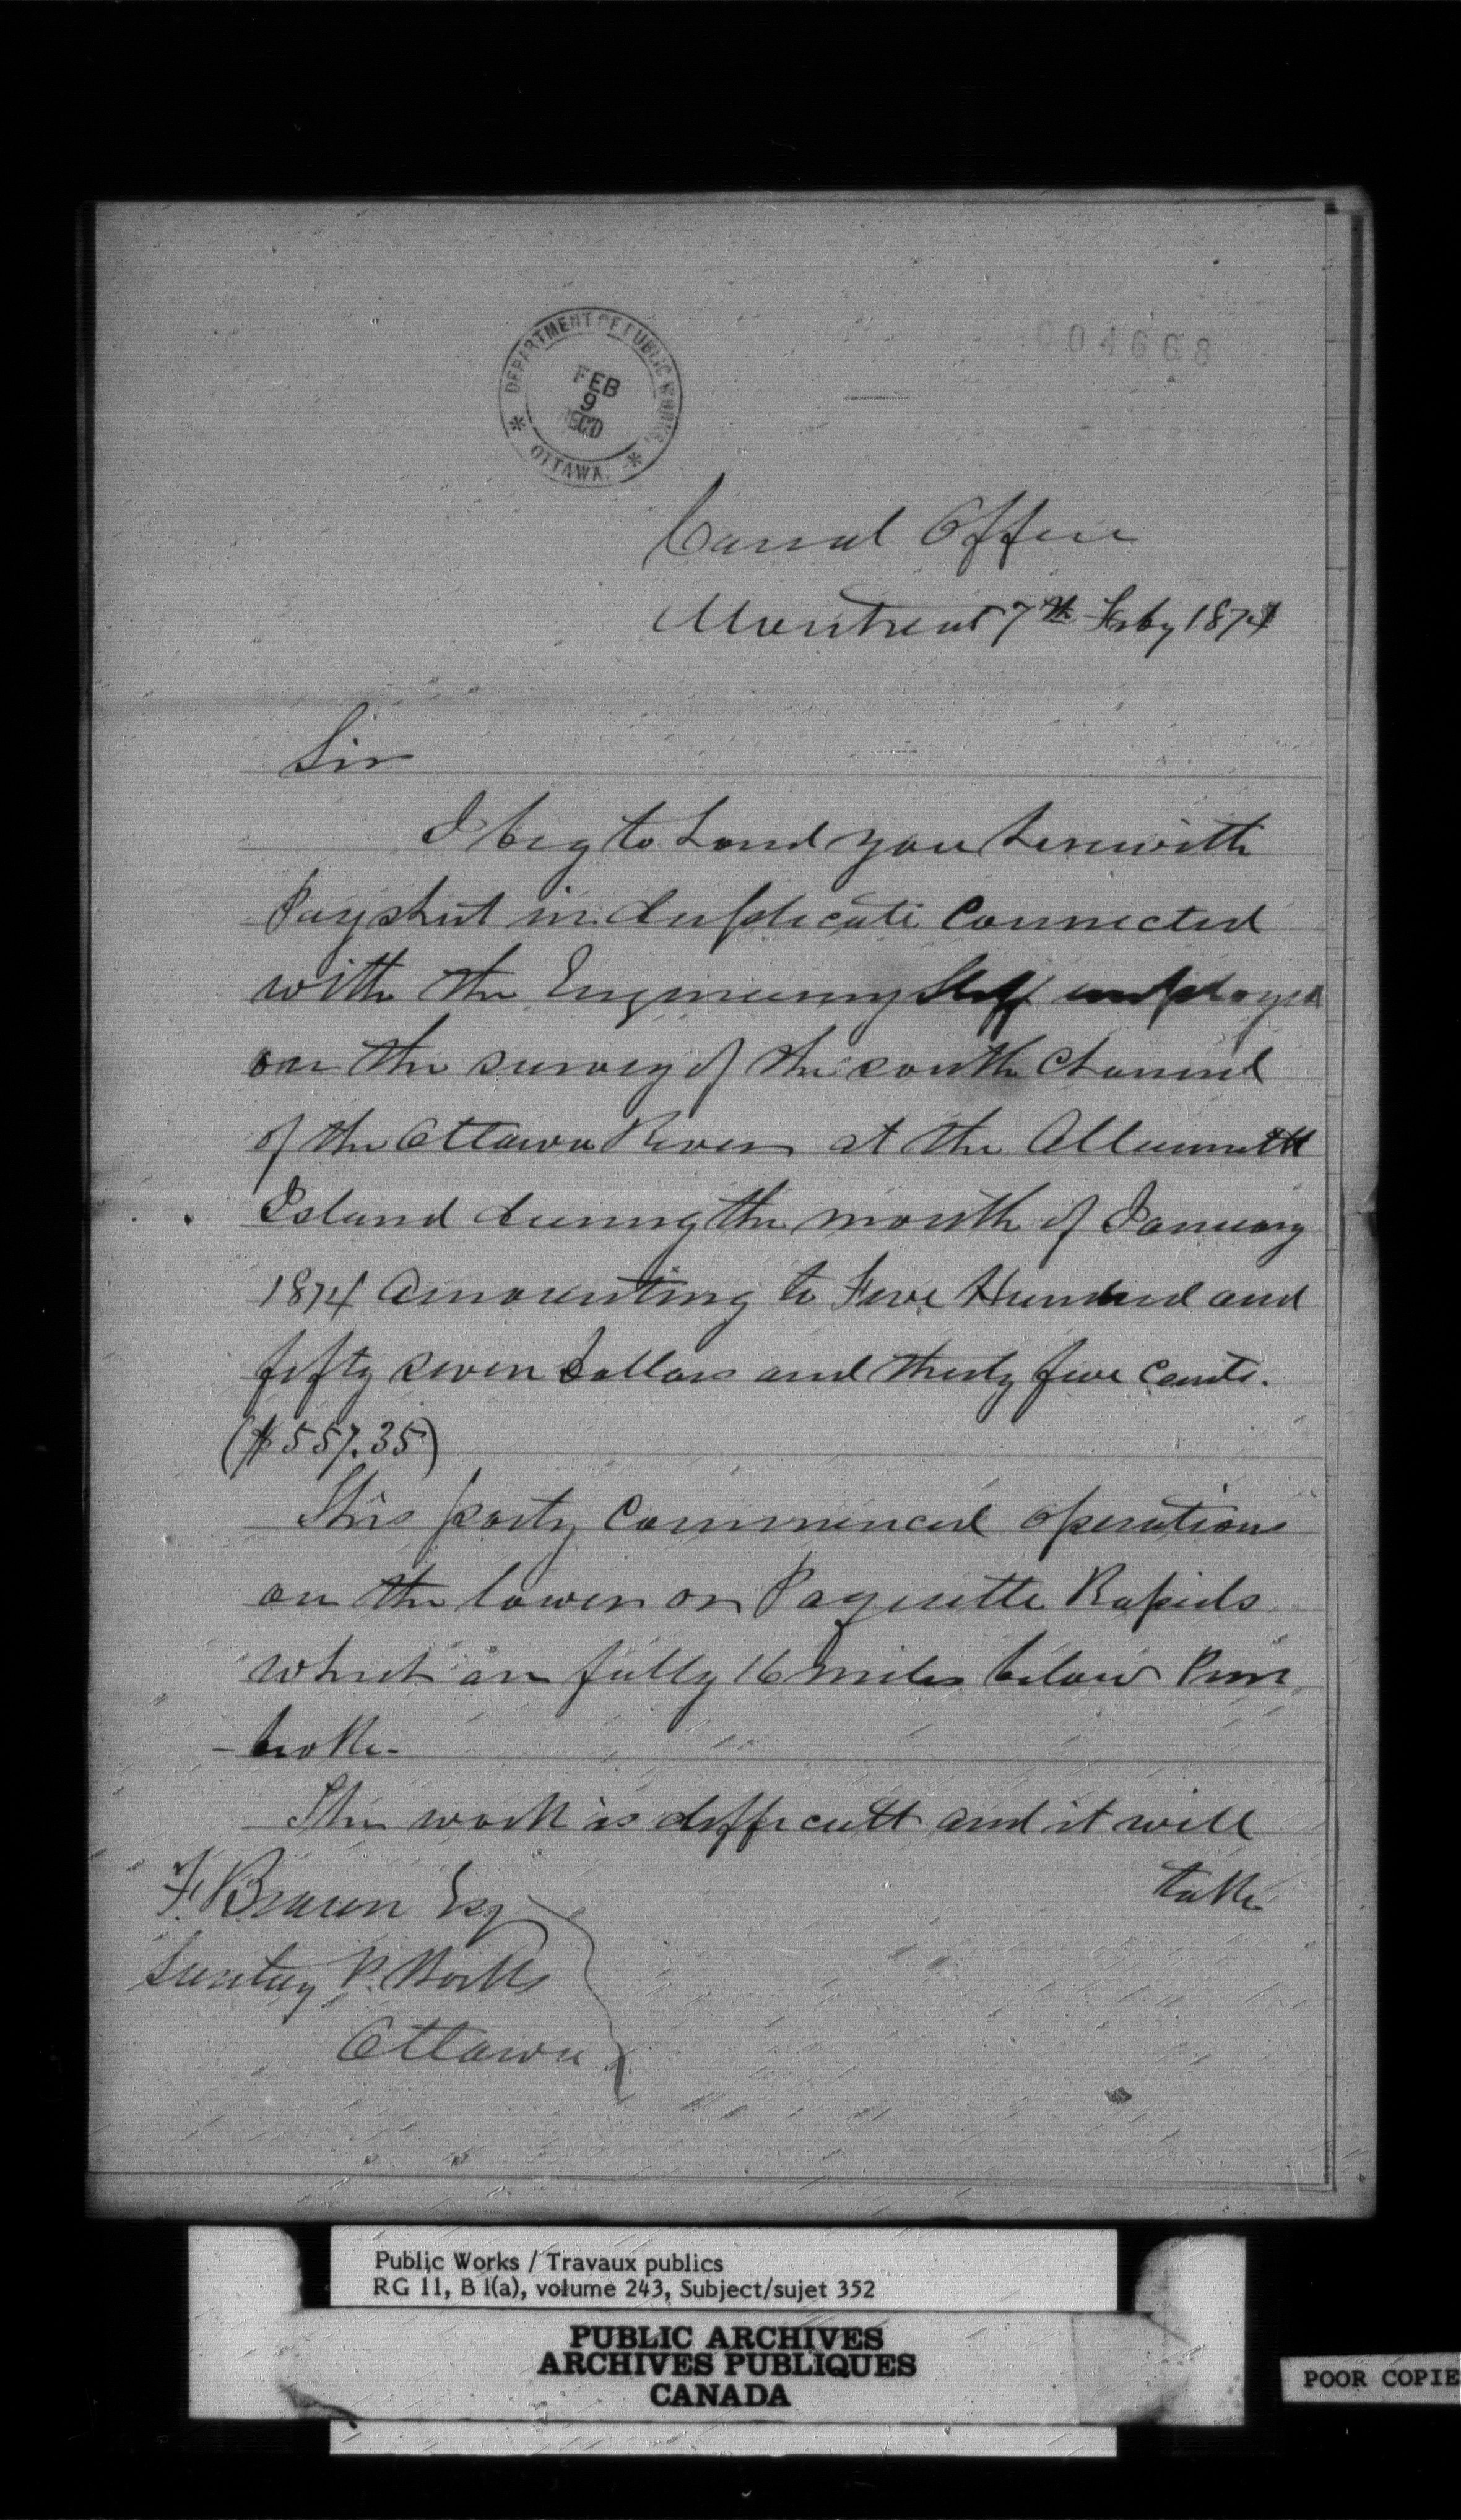 DEPARTMENT OF PUBLIC WORKS,
FEB
9
REC'D
* OTTAWA. *
004668
Canal Office
Montreal 7th Feby 1874
Sir
I beg to hand you herewith
Paysheet in duplicate Connected
with the Engineering Staff employed
on the survey of the south Channel
of the Ottawa River at the Allumette
Island during the month of January
1874 amounting to Five Hundred and
fifty seven dollars and thirty five cents.
($557.35)
This party Commenced operations
on the lower or Paquette Rapids
which are fully 16 miles below Pem
-broke.
The work is difficult and it will
take
F. Braun Esq
Secretary P. Works
Ottawa
Public Works / Travaux publics
RG 11, B 1(a), volume 243, Subject/sujet 352
PUBLIC ARCHIVES
ARCHIVES PUBLIQUES
CANADA
POOR COPIE